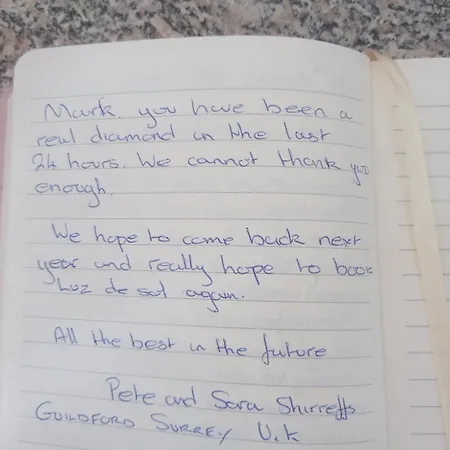 Mark you have been a
real diamond in the last
24 hours. We cannot thank you
enough.
We hope to come back next
year and really hope to book
Luz de sol again.
All the best in the future
Pete and Sara Shirreffs
GUILDFORD SURREY U.K